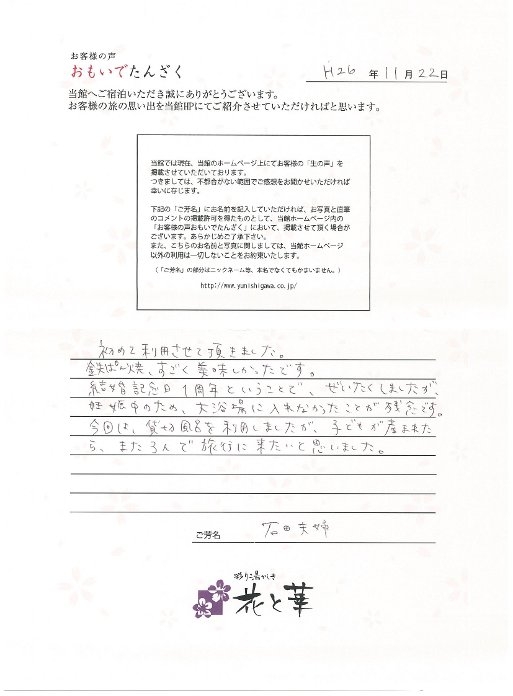 お客様の声
おもいでたんざく
H26 年 11 月 22 日
当館へご宿泊いただき誠にありがとうございます。
お客様の旅の思い出を当館HPにてご紹介させていただければと思います。
当館では現在、当館のホームページ上にてお客様の「生の声」を
掲載させていただいております。
つきましては、不都合がない範囲でご感想をお聞かせいただければ
幸いに存じます。
下記の「ご芳名」にお名前を記入していただければ、お写真と直筆
のコメントの掲載許可を得たものとして、当館ホームページ内の
「お客様の声おもいでたんざく」において、掲載させて頂く場合が
ございます。あらかじめご了承下さい。
また、こちらのお名前と写真に関しましては、当館ホームページ
以外の利用は一切しないことをお約束いたします。
(「ご芳名」の部分はニックネーム等、本名でなくてもかまいません。)
http://www.yunishigawa.co.jp/
初めて利用させて頂きました。
鉄ぱん焼、すごく美味しかったです。
結婚記念日1周年ということで、ぜいたくしましたが、
妊娠中のため、大浴場に入れなかったことが残念です。
今回は、貸切風呂を利用しましたが、子どもが産まれた
ら、また3人で旅行に来たいと思いました。
ご芳名 石田夫婦
彩り湯かしき
花と華